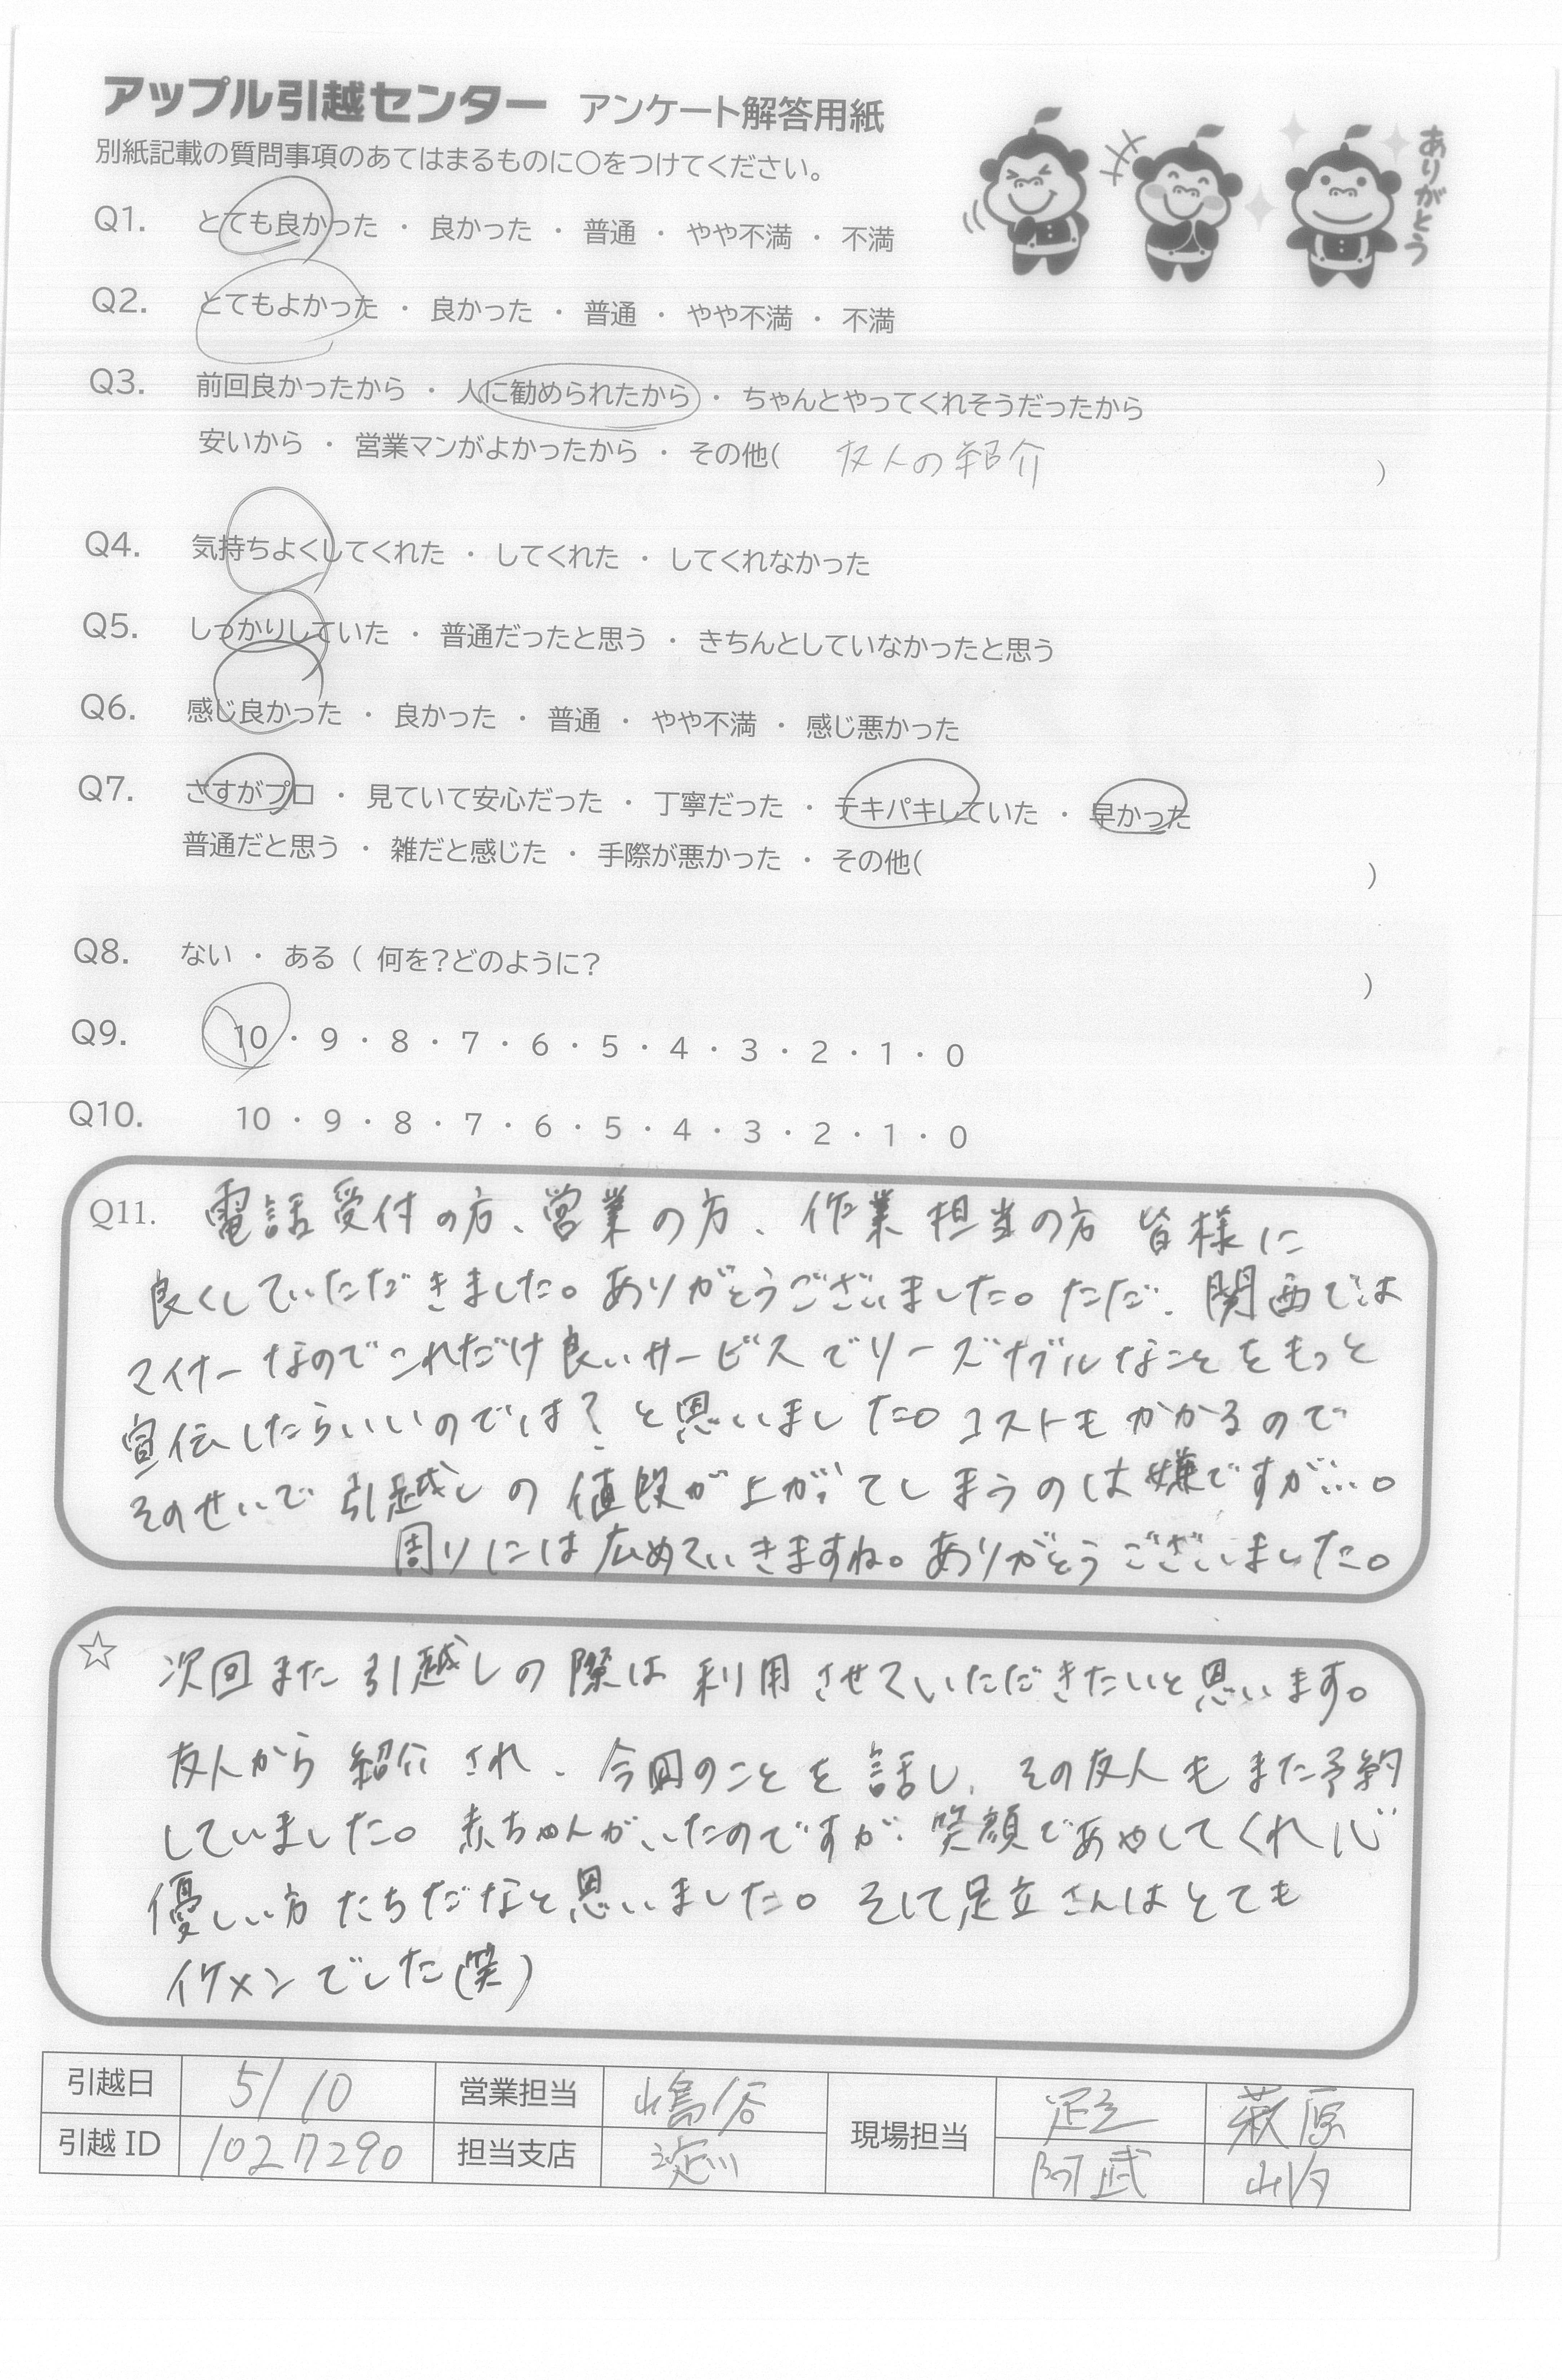 アップル引越センター アンケート解答用紙
別紙記載の質問事項のあてはまるものに〇をつけてください。
ありがとう
Q1. とても良かった ・ 良かった ・ 普通 ・ やや不満 ・ 不満
Q2. とてもよかった ・ 良かった ・ 普通 ・ やや不満 ・ 不満
Q3. 前回良かったから ・ 人に勧められたから ・ ちゃんとやってくれそうだったから
安いから ・ 営業マンがよかったから ・ その他( 友人の紹介 )
Q4. 気持ちよくしてくれた ・ してくれた ・ してくれなかった
Q5. しっかりしていた ・ 普通だったと思う ・ きちんとしていなかったと思う
Q6. 感じ良かった ・ 良かった ・ 普通 ・ やや不満 ・ 感じ悪かった
Q7. さすがプロ ・ 見ていて安心だった ・ 丁寧だった ・ テキパキしていた ・ 早かった
普通だと思う ・ 雑だと感じた ・ 手際が悪かった ・ その他( )
Q8. ない ・ ある ( 何を?どのように? )
Q9. 10 ・ 9 ・ 8 ・ 7 ・ 6 ・ 5 ・ 4 ・ 3 ・ 2 ・ 1 ・ 0
Q10. 10 ・ 9 ・ 8 ・ 7 ・ 6 ・ 5 ・ 4 ・ 3 ・ 2 ・ 1 ・ 0
Q11. 電話受付の方、営業の方、作業担当の方 皆様に
良くしていただきました。ありがとうございました。ただ、関西では
マイナーなのでこれだけ良いサービスでリーズナブルなことをもっと
宣伝したらいいのでは?と思いました。コストもかかるので
そのせいで引越しの値段が上がってしまうのは嫌ですが…。
周りには広めていきますね。ありがとうございました。
☆ 次回また引越しの際は利用させていただきたいと思います。
友人から紹介され、今回のことを話し、その友人もまた予約
していました。赤ちゃんがいたのですが、笑顔であやしてくれ心
優しい方たちだなと思いました。そして足立さんはとても
イケメンでした(笑)
引越日 5/10 営業担当 嶋谷 現場担当 足立 萩原
引越ID 1027290 担当支店 淀川 阿武 山内